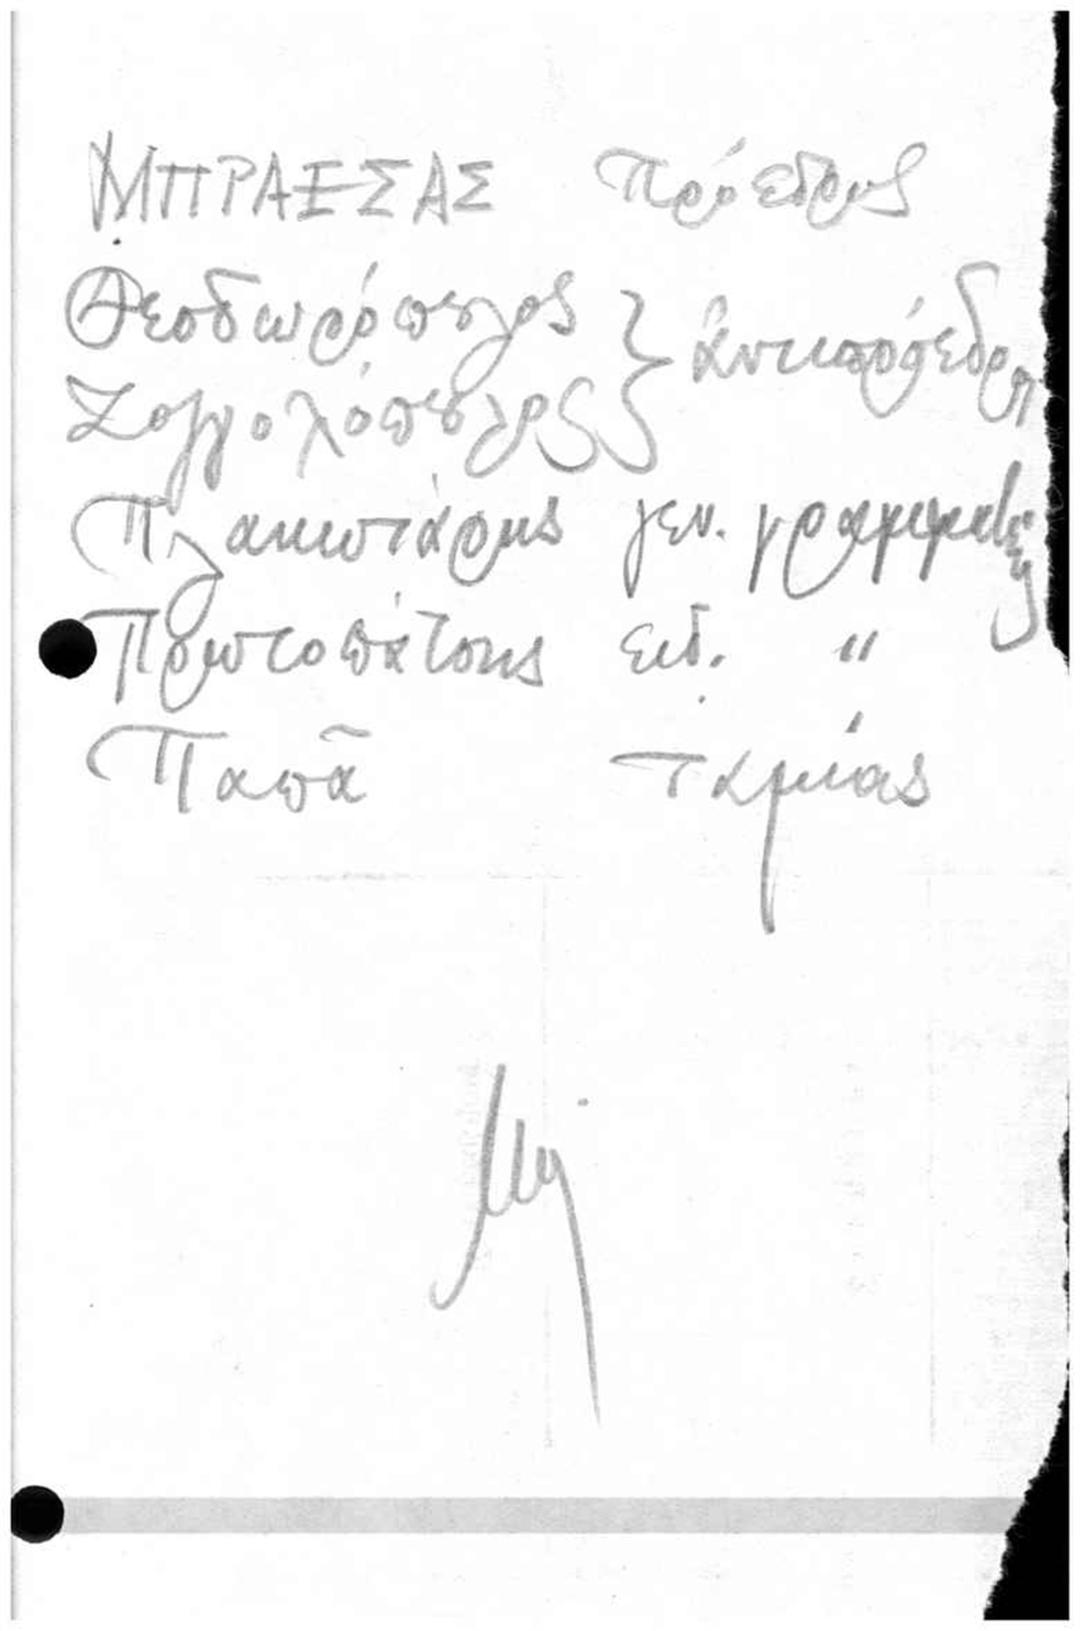 ΜΠΡΑΕΣΑΣ Πρόεδρος
Θεοδωρόπουλος
} ἀντιπρόεδροι
Ζογγολόπουλος
Πλακωτάρης γεν. γραμματεὺς
Πρωτοπάτσης ειδ. "
Παπᾶ ταμίας